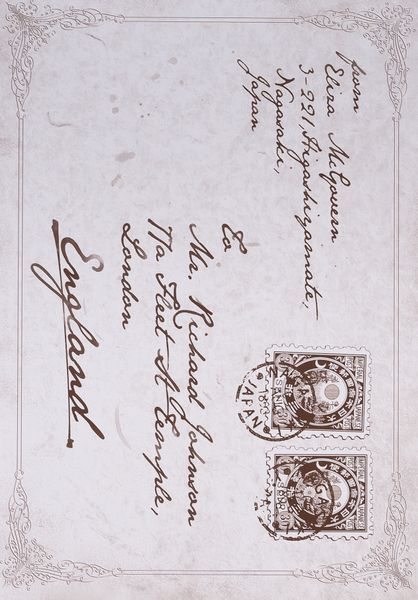 from
Eliza McGovern
3-221, Higashiyamate,
Nagasaki,
Japan
To
Mr. Richard Johnson
17a Fleet St Temple,
London
England
JAPAN